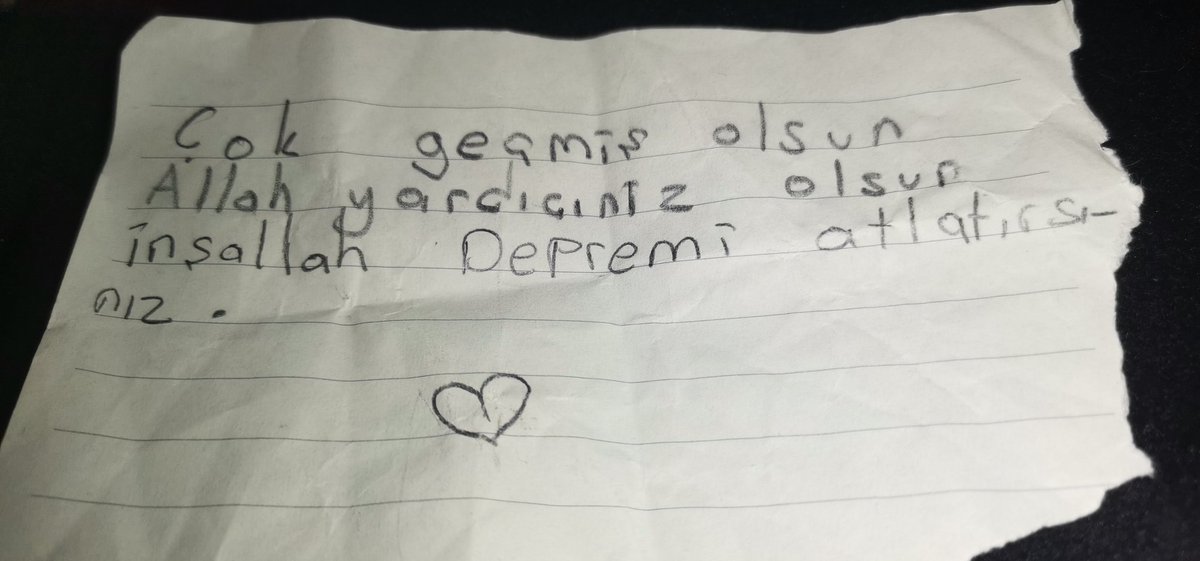 Çok geçmiş olsun
Allah yardıcınız olsun
inşallah Depremi atlatırsı-
nız.